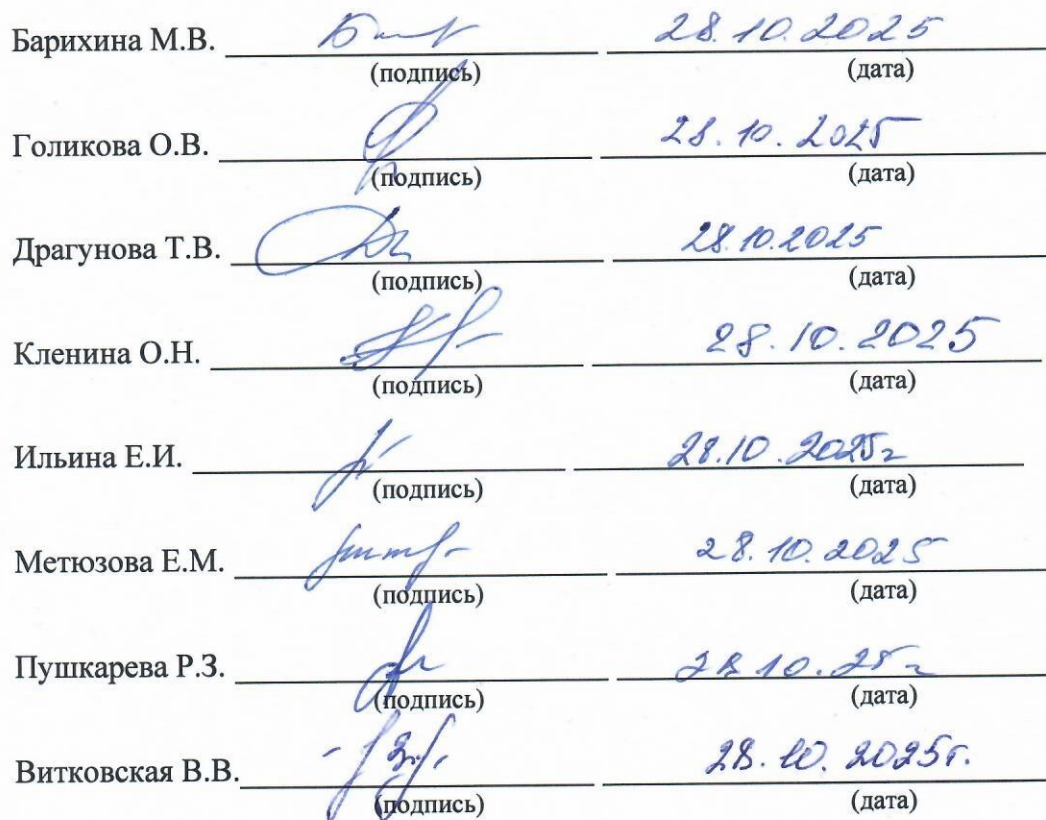 Барихина М.В. 28.10.2025
(подпись) (дата)
Голикова О.В. 28.10.2025
(подпись) (дата)
Драгунова Т.В. 28.10.2025
(подпись) (дата)
Кленина О.Н. 28.10.2025
(подпись) (дата)
Ильина Е.И. 28.10.2025г
(подпись) (дата)
Метюзова Е.М. 28.10.2025
(подпись) (дата)
Пушкарева Р.З. 28.10.25г
(подпись) (дата)
Витковская В.В. 28.10.2025г.
(подпись) (дата)